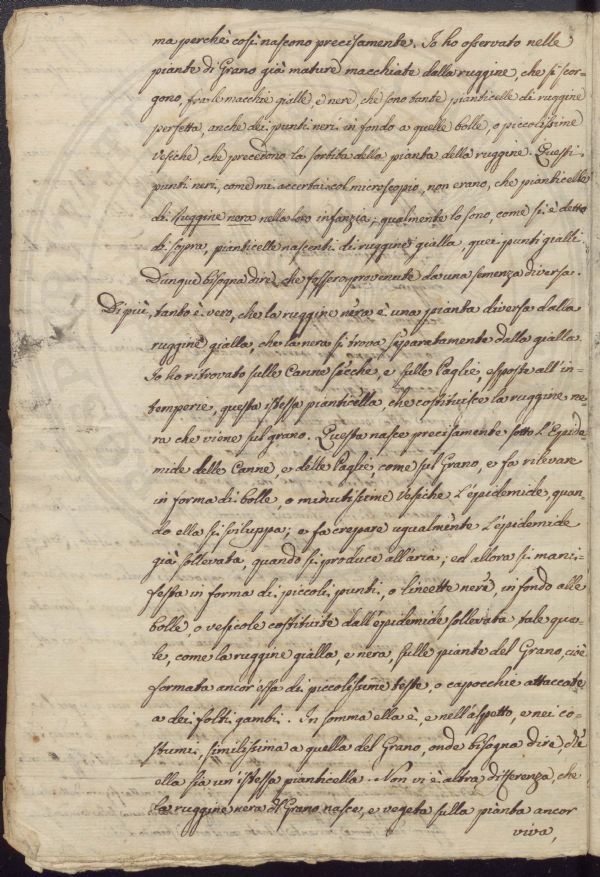 ma perchè così nascono precisamente. Io ho osservato nelle
piante di Grano già mature macchiate dalla ruggine, che si scor-
gono, fra le macchie gialle, e nere, che sono tante pianticelle di ruggine
perfetta, anche dei punti neri in fondo a quelle bolle, o piccolissime
Vesiche, che precedono la sortita della pianta della ruggine. Questi
punti neri, come mi accertai col microscopio, non erano, che pianticelle
di Ruggine nera nella loro infanzia; qualmente lo sono, come si è detto
di sopra, pianticelle nascenti di ruggine gialla quei punti gialli
Dunque bisogna dire, che fossero provenute da una semenza diversa.
Di più, tanto è vero, che la ruggine nera è una pianta diversa dalla
ruggine gialla, che la nera si trova separatamente dalla gialla.
Io ho ritrovato sulle Canne secche, e sulle Paglie, esposte all'in-
temperie, questa istessa pianticella, che costituisce la ruggine ne-
ra che viene sul grano. Questa nasce precisamente sotto l'Epide-
mide delle Canne, e delle Paglie, come sul Grano, e fa rilevare
in forma di bolle, o minutissime Vesiche l'épidemide, quan-
do ella si sviluppa; e fa crepare ugualmente l'épidemide
già sollevata, quando si produce all'aria; ed allora si mani-
festa in forma di piccoli punti, o lineette nere, in fondo alle
bolle, o vesicole costituite dall'épidemide sollevata, tale qua-
le, come la ruggine gialla, e nera, sulle piante del Grano, cioè
formata ancor'essa di piccolissime teste, o capocchie attaccate
a dei folti gambi. In somma ella è, e nell'aspetto, e nei co-
stumi, similissima a quella del Grano, onde bisogna dire che
ella sia un'istessa pianticella. Non vi è altra differenza, che
la ruggine nera del Grano nasce, e vegeta sulla pianta ancor
viva,